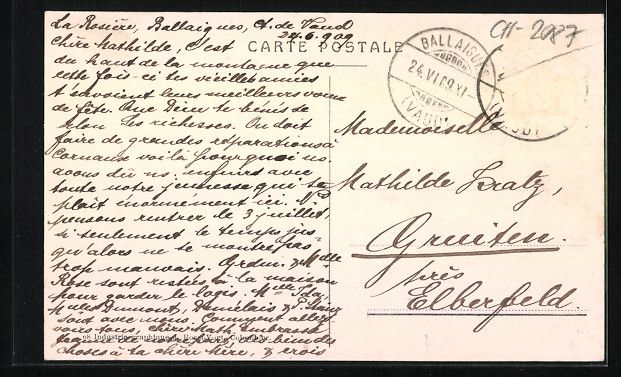 La Rosière, Ballaigues, Ct. de Vaud
24.6.909
Chère Mathilde, C'est
du haut de la montagne que
cette fois-ci tes vieilles amies
t'envoient leurs meilleurs voeux
de fête. Que Dieu te bénisse
selon Ses richesses. On doit
faire de grandes réparations à
Cornaux voilà pourquoi ns.
avons dû ns. enfuir avec
toute notre jeunesse qui se
plaît énormément ici. Ns
pensons rentrer le 3 juillet
si seulement le temps jus-
qu'alors ne se montre pas
trop mauvais. & Mlle
Rose sont restées à la maison
pour garder le logis. Mlle
Mlles Dumont, &
sont avec nous. Comment allez-
vous tous, chère Math. embrasse
bien des
choses à ta chère mère, & crois
CARTE POSTALE
BALLAIGUES
24.VI.09.XI
(VAUD)
CH-2987
Mademoiselle
Mathilde Kratz,
Gruiten.
près
Elberfeld.